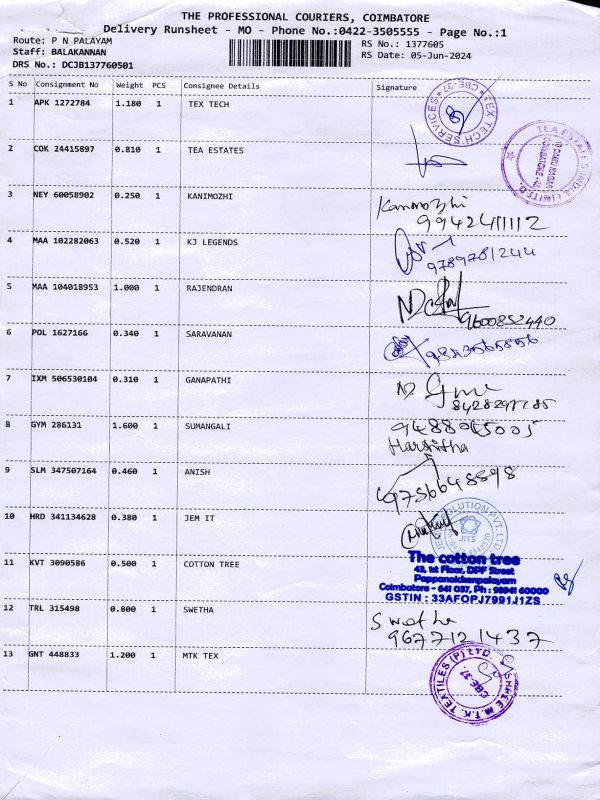 THE PROFESSIONAL COURIERS, COIMBATORE
Delivery Runsheet - MO - Phone No.:0422-3505555 - Page No.:1
Route: P N PALAYAM
RS No.: 1377605
Staff: BALAKANNAN
RS Date: 05-Jun-2024
DRS No.: DCJB137760501
S No Consignment No Weight PCS Consignee Details Signature
1 APK 1272784 1.180 1 TEX TECH
TEX TECH SERVICES CBE-37
2 COK 24415897 0.810 1 TEA ESTATES
TEA ESTATES INDIA LIMITED
3 NEY 60058902 0.250 1 KANIMOZHI
Kanimozhi
9942411112
4 MAA 102282063 0.520 1 KJ LEGENDS
9789781244
5 MAA 104018953 1.000 1 RAJENDRAN
9600852440
6 POL 1627166 0.340 1 SARAVANAN
7 IXM 506530104 0.310 1 GANAPATHI
8 GYM 286131 1.600 1 SUMANGALI
Harshitha
9 SLM 347507164 0.460 1 ANISH
9736648898
10 HRD 341134628 0.380 1 JEM IT
JITS
11 KVT 3090586 0.500 1 COTTON TREE
The cotton tree
43, 1st Floor, DPF Street
Pappanaickenpalayam
Coimbatore - 641 037, Ph : 98941 60000
GSTIN : 33AFOPJ7991J1ZS
12 TRL 315498 0.800 1 SWETHA
Swetha
9677121437
13 GNT 448833 1.200 1 MTK TEX
SHREE M.T.K. TEXTILES (P) LTD CBE-37.